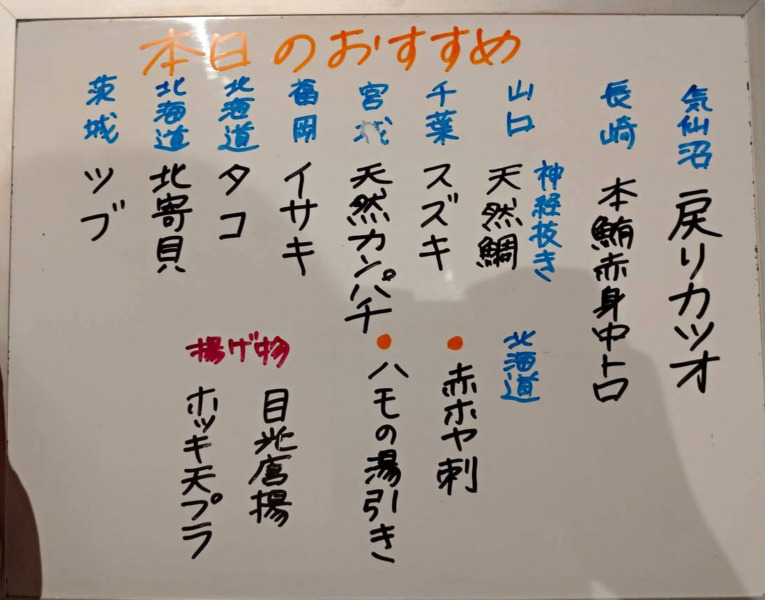 本日のおすすめ
気仙沼
戻りカツオ
長崎
本鮪赤身中トロ
山口
神経抜き
天然鯛
千葉
スズキ
宮城
天然カンパチ
福岡
イサキ
北海道
タコ
北海道
北寄貝
茨城
ツブ
北海道
●赤ホヤ刺
●ハモの湯引き
揚げ物
目光唐揚
ホッキ天プラ